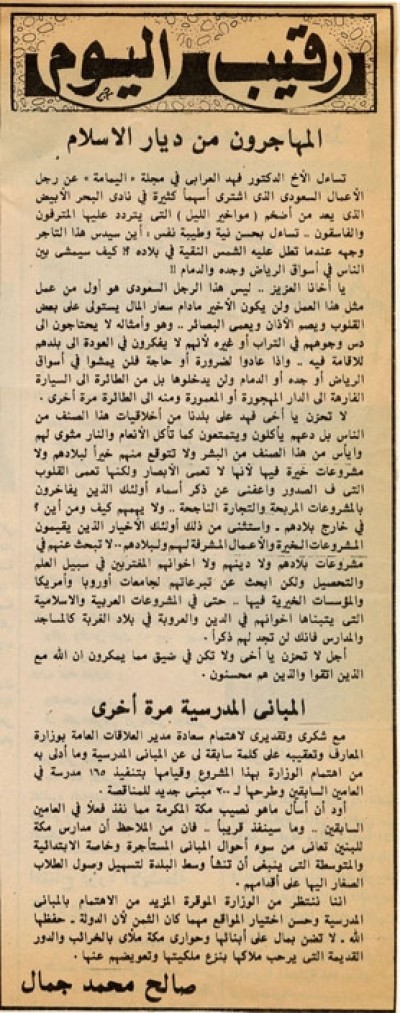 رقيب اليوم
المهاجرون من ديار الاسلام
تساءل الأخ الدكتور فهد العرابى في مجلة « اليمامة » عن رجل
الأعمال السعودى الذى اشترى أسهماً كثيرة في نادى البحر الأبيض
الذى يعد من أضخم ( مواخير الليل ) التى يتردد عليها المترفون
والفاسقون .. تساءل بحسن نية وطيبة نفس : أين سيدس هذا التاجر
وجهه عندما تطل عليه الشمس النقية في بلاده ؟! كيف سيمشى بين
الناس في أسواق الرياض وجده والدمام !!
يا أخانا العزيز .. ليس هذا الرجل السعودى هو أول من عمل
مثل هذا العمل ولن يكون الأخير مادام سعار المال يستولى على بعض
القلوب ويصم الآذان ويعمى البصائر .. وهو وأمثاله لا يحتاجون الى
دس وجوههم في التراب أو غيره لأنهم لا يفكرون في العودة الى بلدهم
للاقامة فيه .. واذا عادوا لضرورة أو حاجة فلن يمشوا في أسواق
الرياض أو جده أو الدمام ولن يدخلوها بل من الطائرة الى السيارة
الفارهة الى الدار المهجورة أو المعمورة ومنه الى الطائرة مرة أخرى .
لا تحزن يا أخى فهد على بلدنا من أخلاقيات هذا الصنف من
الناس بل دعهم يأكلون ويتمتعون كما تأكل الأنعام والنار مثوى لهم
وايأس من هذا الصنف من البشر ولا تتوقع منهم خيراً لبلادهم ولا
مشروعات خيرة فيها لأنها لا تعمى الأبصار ولكنها تعمى القلوب
التى ف الصدور واعفنى عن ذكر أسماء أولئك الذين يفاخرون
بالمشروعات المربحة والتجارة الناجحة .. ولا يهمهم كيف ومن أين ؟
في خارج بلادهم .. واستثنى من ذلك أولئك الأخيار الذين يقيمون
المشروعات الخيرة والأعمال المشرفة لهم ولبلادهم ٠٠ لا تبحث عنهم في
مشروعات بلادهم ولا دينهم ولا اخوانهم المغتربين في سبيل العلم
والتحصيل ولكن ابحث عن تبرعاتهم لجامعات أوروبا وأمريكا
والمؤسسات الخيرية فيها .. حتى في المشروعات العربية والاسلامية
التى يتبناها اخوانهم في الدين والعروبة في بلاد الغربة كالمساجد
والمدارس فانك لن تجد لهم ذكراً .
أجل لا تحزن يا أخى ولا تكن في ضيق مما يمكرون ان الله مع
الذين اتقوا والذين هم محسنون .
المبانى المدرسية مرة أخرى
مع شكرى وتقديرى لاهتمام سعادة مدير العلاقات العامة بوزارة
المعارف وتعقيبه على كلمة سابقة لى عن المبانى المدرسية وما أدلى به
من اهتمام الوزارة بهذا المشروع وقيامها بتنفيذ ١٦٥ مدرسة في
العامين السابقين وطرحها لـ ٢٠٠ مبنى جديد للمناقصة .
أود أن أسأل ماهو نصيب مكة المكرمة مما نفذ فعلاً في العامين
السابقين .. وما سينفذ قريباً .. فان من الملاحظ أن مدارس مكة
للبنين تعانى من سوء أحوال المبانى المستأجرة وخاصة الابتدائية
والمتوسطة التى ينبغى أن تنشأ وسط البلدة لتسهيل وصول الطلاب
الصغار اليها على أقدامهم .
اننا ننتظر من الوزارة الموقرة المزيد من الاهتمام بالمبانى
المدرسية وحسن اختيار المواقع مهما كان الثمن لأن الدولة ـ حفظها
الله ـ لا تضن بمال على أبنائها وحوارى مكة ملأى بالخرائب والدور
القديمة التى يرحب ملاكها بنزع ملكيتها وتعويضهم عنها .
صالح محمد جمال